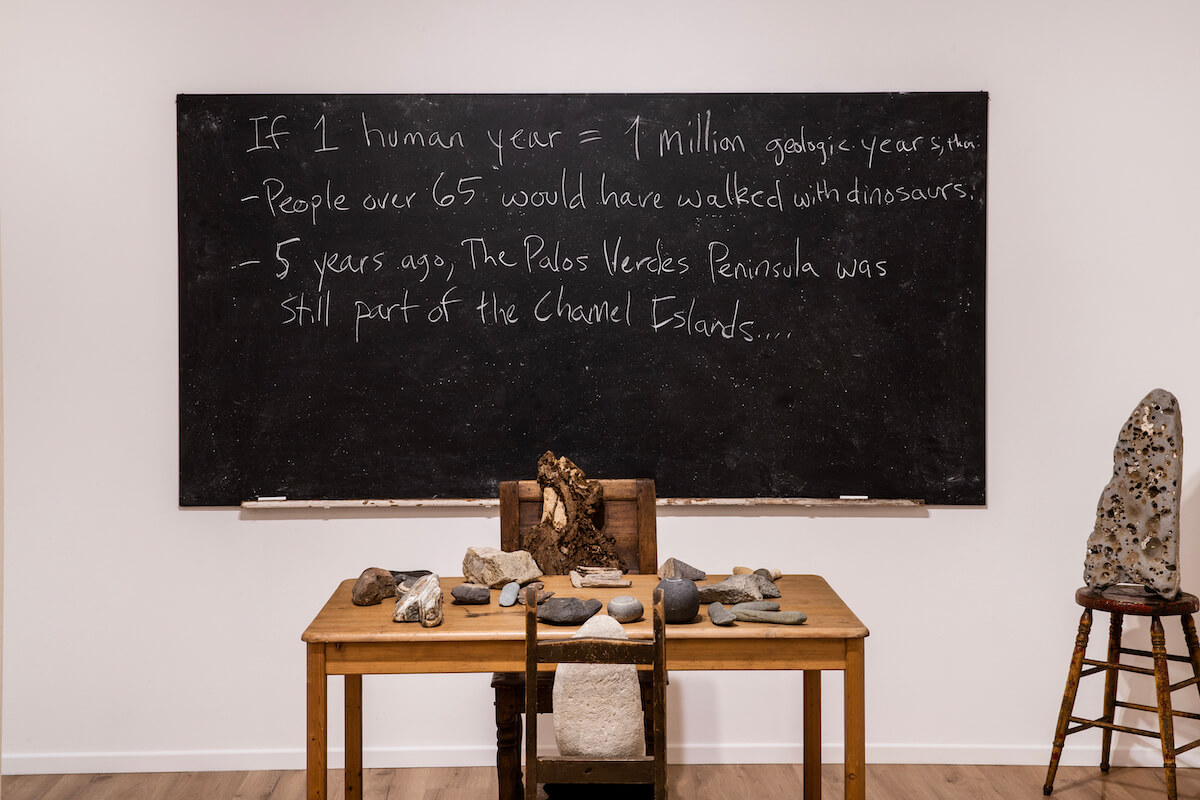 If 1 human year = 1 million geologic years, then
- People over 65 would have walked with dinosaurs.
- 5 years ago, The Palos Verdes Peninsula was
still part of the Channel Islands....